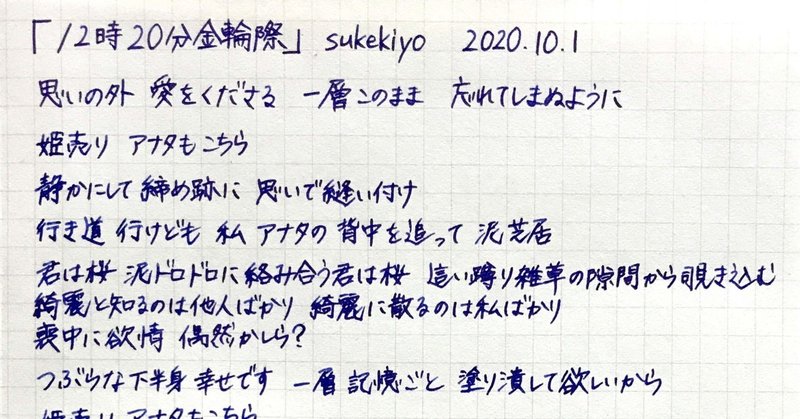 「12時20分金輪際」 sukekiyo 2020.10.1
思いの外 愛をくださる 一層このまま 忘れてしまぬように
姫売り アナタもこちら
静かにして 締め跡に 思いで縫い付け
行き道 行けども 私 アナタの 背中を追って 泥芝居
君は桜 泥ドロドロに絡み合う君は桜 這い蹲り雑草の隙間から覗き込む
綺麗と知るのは他人ばかり 綺麗に散るのは私ばかり
喪中に欲情 偶然かしら?
つぶらな下半身 幸せです 一層 記憶ごと 塗り潰して欲しいから
姫売り アナタもこちら